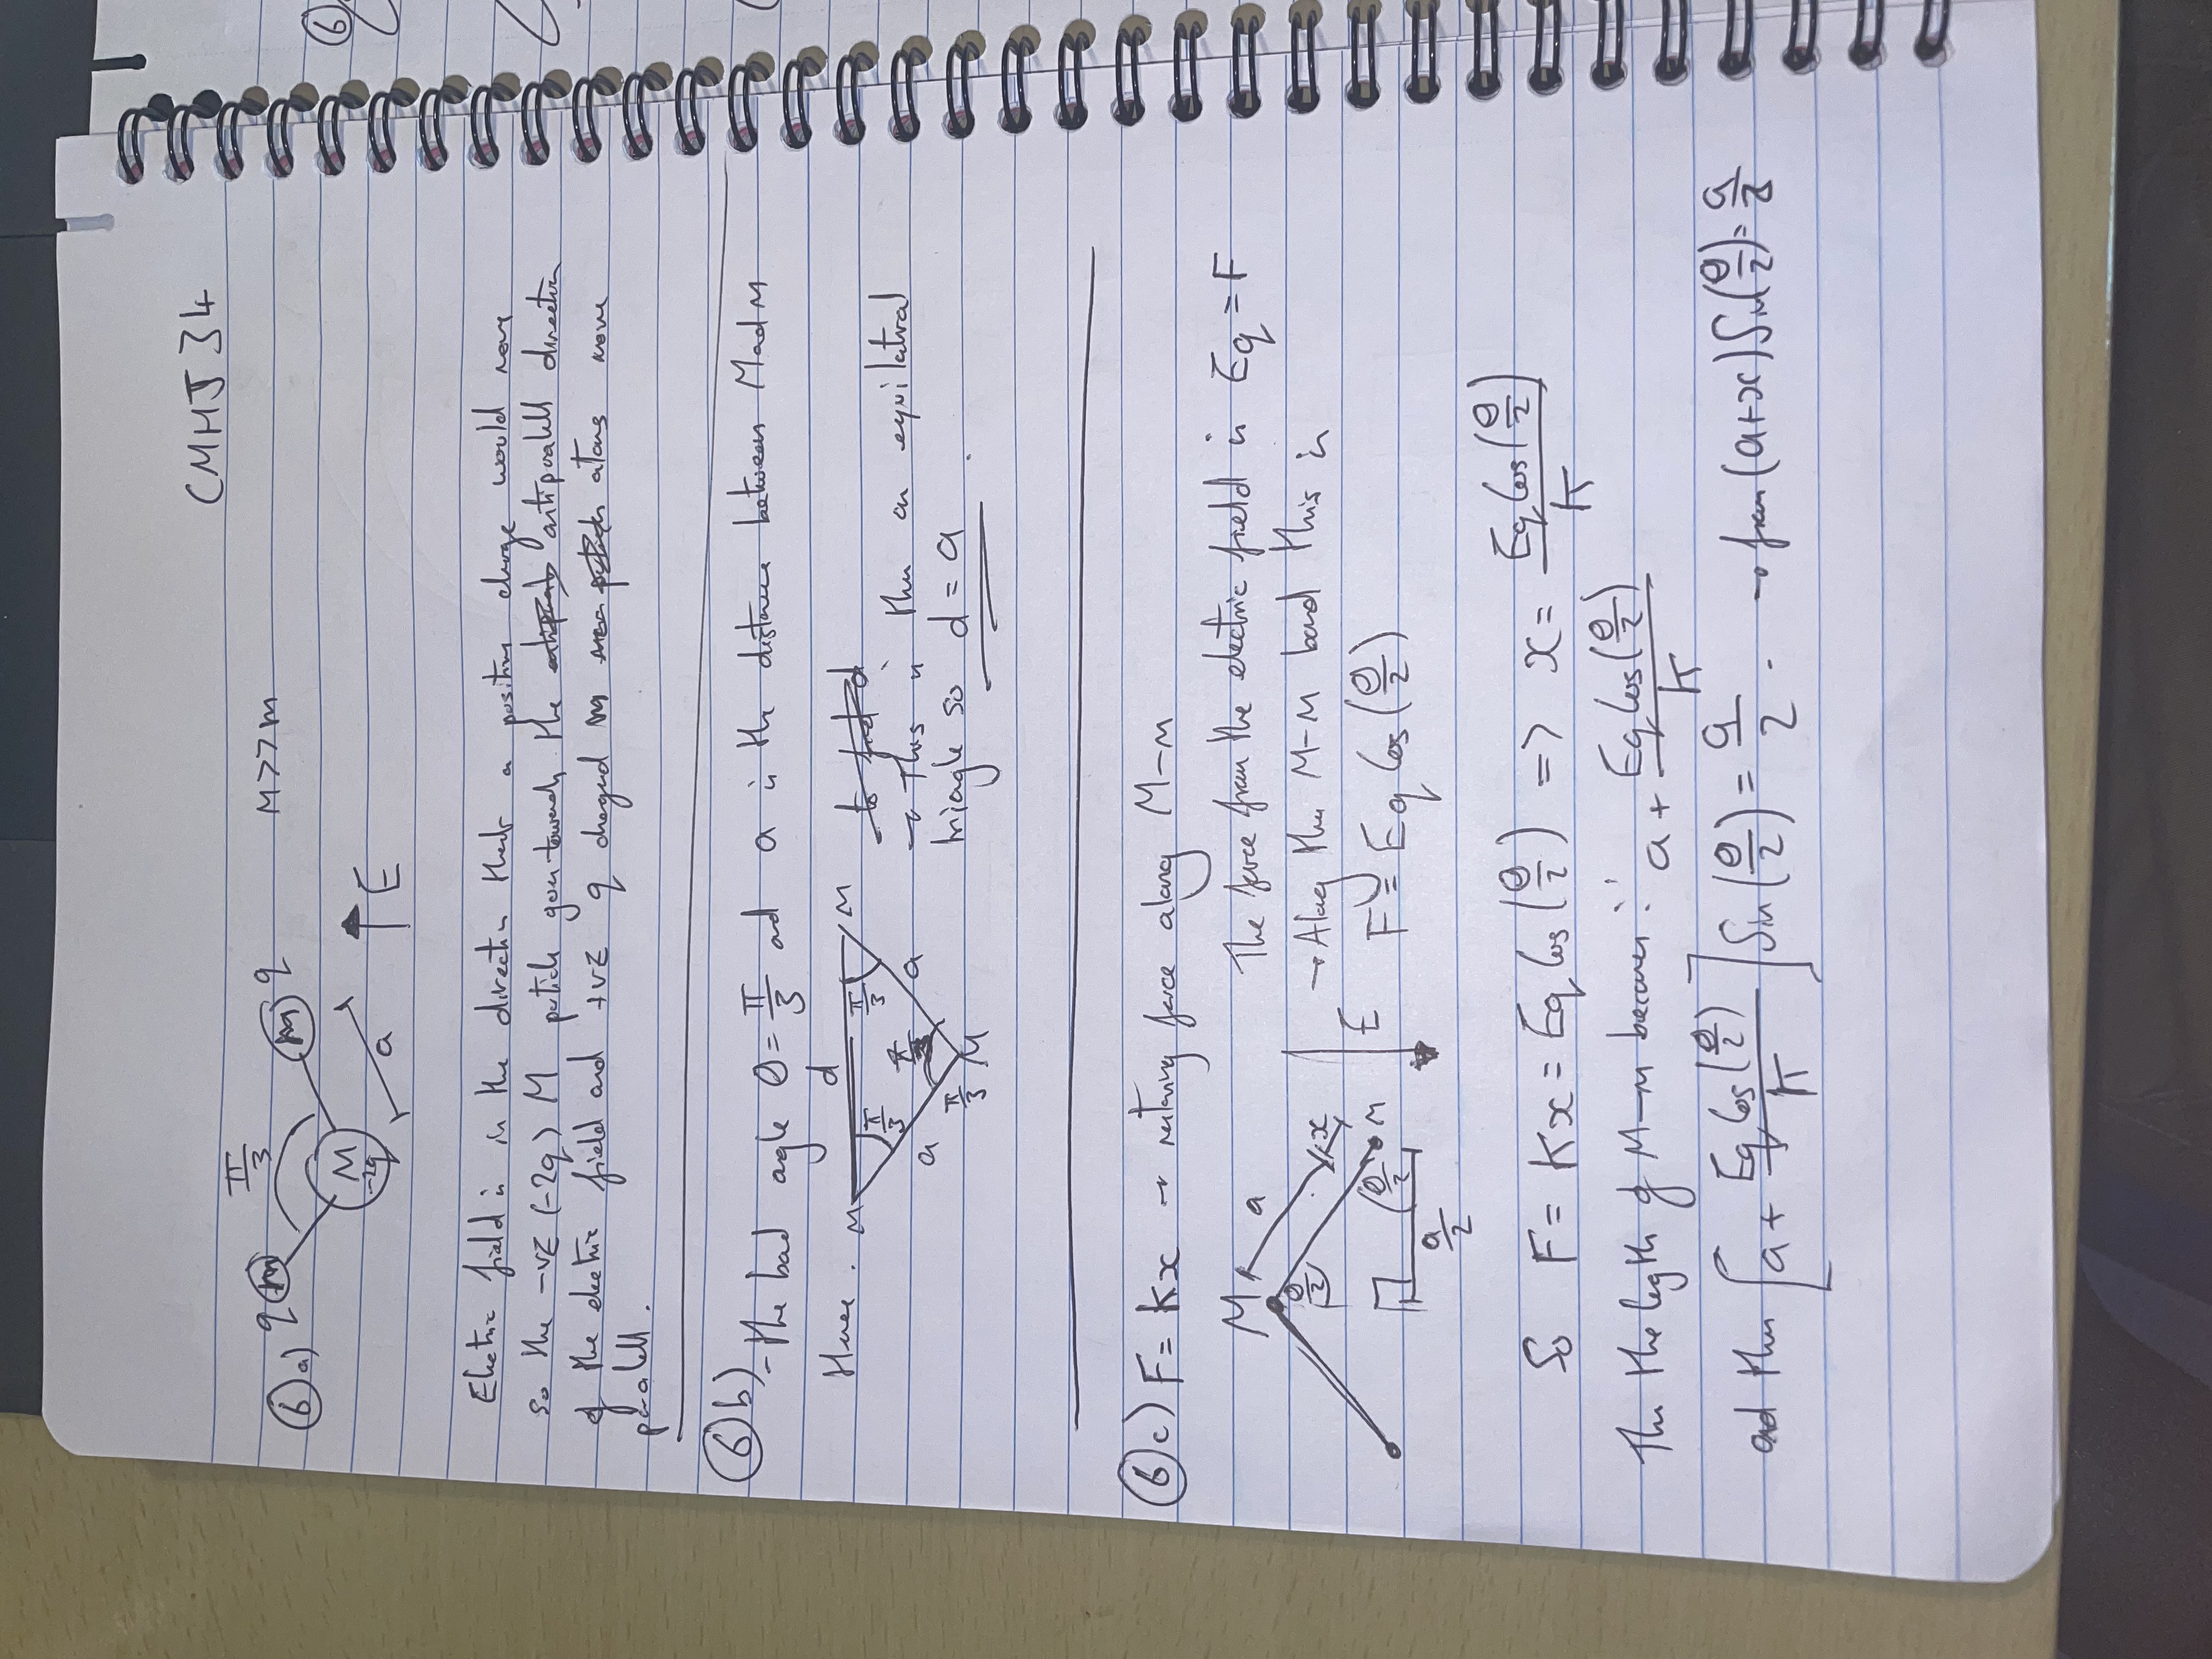 CMHJ34
⑥a) q m π/3 m q M>>m
M
-2q
a
E
Electric field is in the direction that a positive charge would move
so the -vE (-2q) M particle goes towards the antiparalell direction
of the electric field and +vE q charged m atoms move
paralell.
⑥b) - The bond angle θ = π/3 and a is the distance between M and M
Hence.
M d M
π/3 π/3
a a
π/3 M
→ This is then an equilatral
triangle so d = a.
⑥c) F = Kx → restoring force along M-m
M a x
θ/2
θ/2 M
a/2
E
The force from the electric field is Eq = F
→ Along the M-M bond this is
F = Eq Cos(θ/2)
So F = Kx = Eq Cos(θ/2) => x = Eq Cos(θ/2)/K
Then the length of M-m becomes: a + Eq Cos(θ/2)/K
and then [a + Eq Cos(θ/2)/K] Sin(θ/2) = a/2. → from (a+x)Sin(θ/2) = a/2
⑥